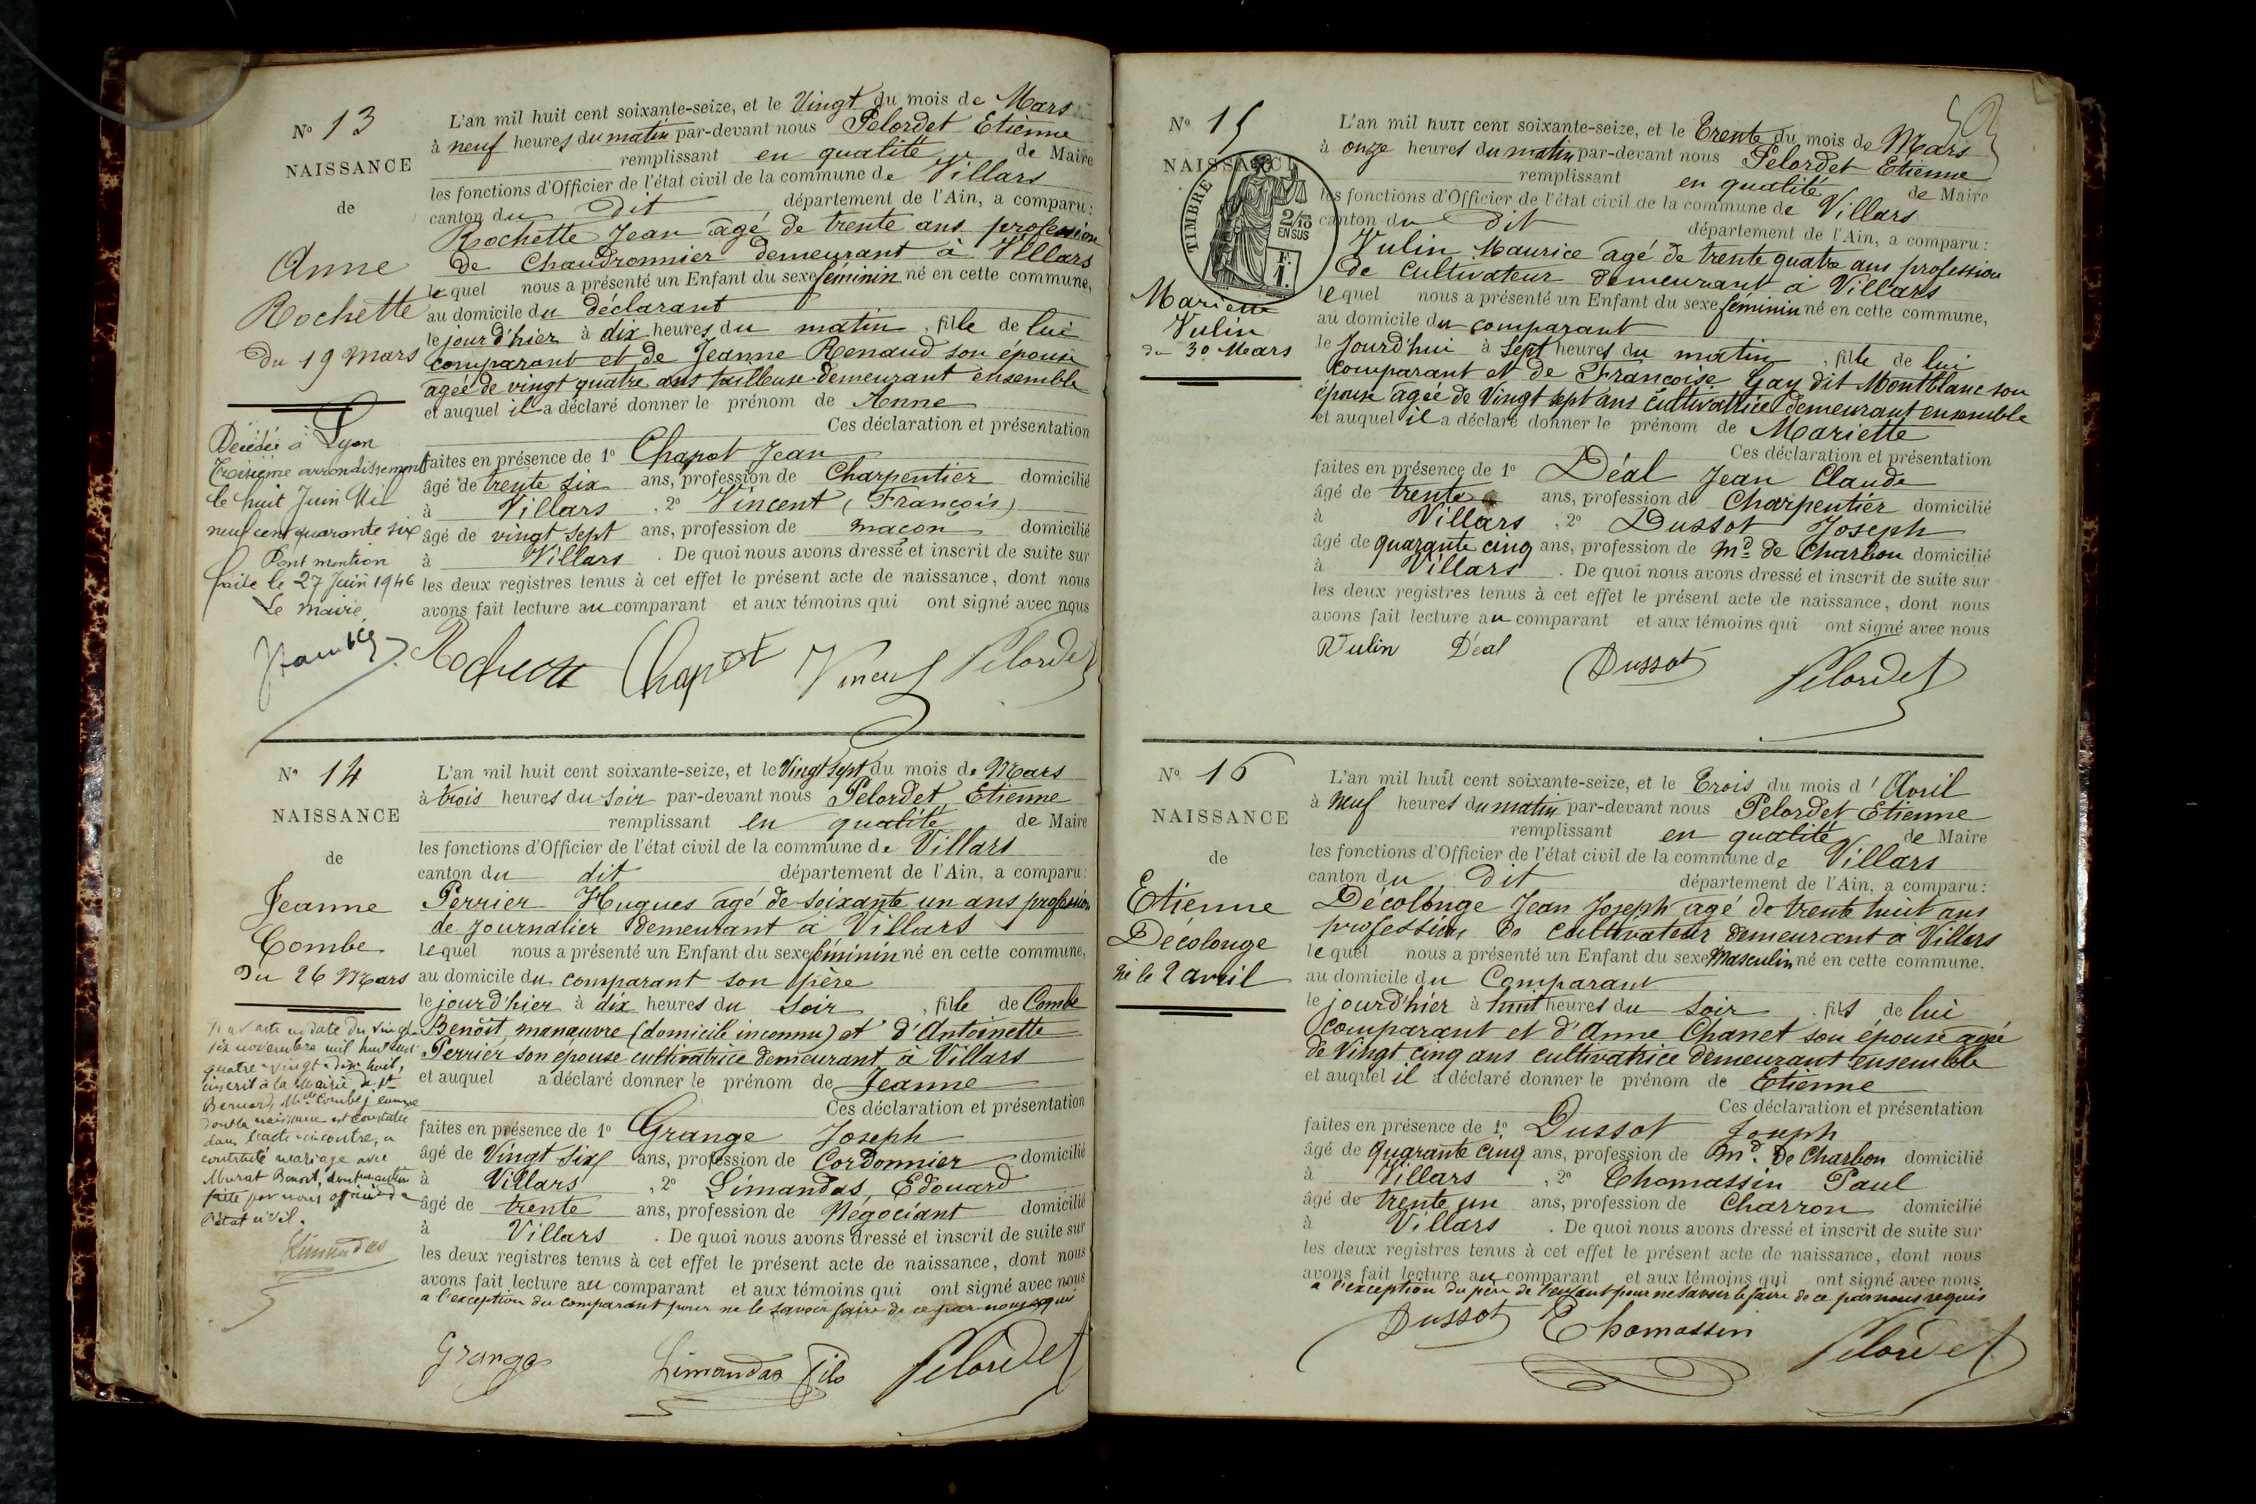 N° 13
NAISSANCE
de
Anne
Rochette
Du 19 Mars
Décédée à Lyon
Troisième arrondissement
le huit Juin Mil
neuf cent quarante six
Dont mention
faite le 27 Juin 1946
Le Maire
L'an mil huit cent soixante-seize, et le Vingt du mois de Mars
à neuf heures du matin par-devant nous Pelordet Etienne
remplissant en qualité de Maire
les fonctions d'Officier de l'état civil de la commune de Villars
canton du dit département de l'Ain, a comparu:
Rochette Jean agé de trente ans profession
de Chaudronnier demeurant à Villars
lequel nous a présenté un Enfant du sexe féminin né en cette commune,
au domicile du déclarant
le jourd'hier à dix heures du matin, fille de lui
comparant et de Jeanne Renaud son épouse
agée de vingt quatre ans tailleuse demeurant ensemble
et auquel il a déclaré donner le prénom de Anne
Ces déclaration et présentation
faites en présence de 1° Chapot Jean
âgé de trente six ans, profession de Charpentier domicilié
à Villars, 2° Vincent (François)
âgé de vingt sept ans, profession de maçon domicilié
à Villars. De quoi nous avons dressé et inscrit de suite sur
les deux registres tenus à cet effet le présent acte de naissance, dont nous
avons fait lecture au comparant et aux témoins qui ont signé avec nous
Rochette Chapot Vincent Pelordet
N° 14
NAISSANCE
de
Jeanne
Combe
Du 26 Mars
Par acte en date du vingt
six novembre mil huit cent
quatre-vingt-dix huit,
inscrit à la Mairie de St
Bernard, Melle Combe Jeanne
dont la naissance est constatée
dans l'acte ci-contre, a
contracté mariage avec
Murat Benoit, dont mention
faite par nous officier de
l'état civil.
Limandas
L'an mil huit cent soixante-seize, et le Vingt sept du mois de Mars
à trois heures du soir par-devant nous Pelordet Etienne
remplissant en qualité de Maire
les fonctions d'Officier de l'état civil de la commune de Villars
canton du dit département de l'Ain, a comparu:
Perrier Hugues agé de soixante un ans profession
de journalier demeurant à Villars
lequel nous a présenté un Enfant du sexe féminin né en cette commune,
au domicile du comparant son père
le jourd'hier à dix heures du soir, fille de Combe
Benoît, manœuvre (domicile inconnu) et d'Antoinette
Perrier son épouse cultivatrice demeurant à Villars
et auquel a déclaré donner le prénom de Jeanne
Ces déclaration et présentation
faites en présence de 1° Grange Joseph
âgé de Vingt six ans, profession de Cordonnier domicilié
à Villars, 2° Limandas, Edouard
âgé de trente ans, profession de Négociant domicilié
à Villars. De quoi nous avons dressé et inscrit de suite sur
les deux registres tenus à cet effet le présent acte de naissance, dont nous
avons fait lecture au comparant et aux témoins qui ont signé avec nous
a l'exception du comparant pour ne le savoir faire de ce par nous requis
Grange Limandas fils Pelordet
N° 15
NAISSANCE
TIMBRE
2/10
EN SUS
F.
1.
Mariette
Vulin
du 30 Mars
L'an mil huit cent soixante-seize, et le Trente du mois de Mars
à onze heures du matin par-devant nous Pelordet Etienne
remplissant en qualité de Maire
les fonctions d'Officier de l'état civil de la commune de Villars
canton du dit département de l'Ain, a comparu:
Vulin Maurice agé de trente quatre ans profession
de cultivateur demeurant à Villars
lequel nous a présenté un Enfant du sexe féminin né en cette commune,
au domicile du comparant
le Jourd'hui à sept heures du matin, fille de lui
comparant et de Françoise Gay dit Montblanc son
épouse agée de Vingt sept ans cultivatrice demeurant ensemble
et auquel il a déclaré donner le prénom de Mariette
Ces déclaration et présentation
faites en présence de 1° Déal Jean Claude
âgé de trente ans, profession de Charpentier domicilié
à Villars, 2° Dussot Joseph
âgé de quarante cinq ans, profession de Md de Charbon domicilié
à Villars. De quoi nous avons dressé et inscrit de suite sur
les deux registres tenus à cet effet le présent acte de naissance, dont nous
avons fait lecture au comparant et aux témoins qui ont signé avec nous
Vulin Déal Dussot Pelordet
N° 16
NAISSANCE
de
Etienne
Decolonge
né le 2 avril
L'an mil huit cent soixante-seize, et le Trois du mois d'Avril
à Neuf heures du matin par-devant nous Pelordet Etienne
remplissant en qualité de Maire
les fonctions d'Officier de l'état civil de la commune de Villars
canton du dit département de l'Ain, a comparu:
Décolonge Jean Joseph agé de trente huit ans
profession de cultivateur demeurant à Villars
lequel nous a présenté un Enfant du sexe Masculin né en cette commune,
au domicile du Comparant
le jourd'hier à huit heures du soir, fils de lui
comparant et d'Anne Chanet son épouse agée
de Vingt cinq ans cultivatrice demeurant ensemble
et auquel il a déclaré donner le prénom de Etienne
Ces déclaration et présentation
faites en présence de 1° Dussot Joseph
âgé de quarante cinq ans, profession de Md. De Charbon domicilié
à Villars, 2° Thomassin Paul
âgé de trente un ans, profession de Charron domicilié
à Villars. De quoi nous avons dressé et inscrit de suite sur
les deux registres tenus à cet effet le présent acte de naissance, dont nous
avons fait lecture au comparant et aux témoins qui ont signé avec nous
a l'exception du père de l'enfant pour ne savoir le faire de ce par nous requis
Dussot Thomassin Pelordet